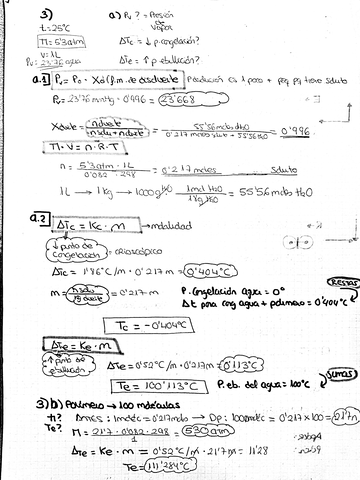 3)
a) Pv ? = Presión de Vapor
t = 25°C
Π = 5'3 atm
V = 1L
Pv = 23'76 agua
ΔTc = ↓ p. congelación?
ΔTe = ↑ p. ebullición?
a.1) Pv = P0 · Xd (f.m. de disolvente
Pv = 23'76 mmHg · 0'996 = 23'668
Xdvte = ndvte / nsdu + ndvte = 55'56 mols H2O / 0'217 mols sdut + 55'56 = 0'996
Π · V = n · R · T
n = 5'3 atm · 1L / 0'082 · 298 = 0'217 moles sduto
1L → 1Kg → 1000g H2O · 1mol H2O / 18g H2O = 55'56 mols H2O
a.2) ΔTc = Kc · m → molalidad
↓ punto de congelación = crioscópico
ΔTc = 1'86°C/m · 0'217 m = 0'404°C
m = nsdu / Kg dvte = 0'217 m
P. congelación agua = 0°
RESTAS
Δt para cong agua + polímero = 0'404°C
Tc = -0'404°C
ΔTe = Ke · m
↑ punto de ebullición
ΔTe = 0'52°C/m · 0'217m = 0'113°C
Te = 100'113°C
P. eb. del agua = 100°C
SUMAS
3) b) Polímero → 100 moléculas
Π? 1 molec = 0'217 mols → Dp: 100 molec = 0'217 x 100 = 21'7
Te? Π = 21'7 · 0'082 · 298 / 1 = 530 atm
ΔTe = Ke · m = 0'52°C/m · 21'7m = 11'28
Te = 111'284°C